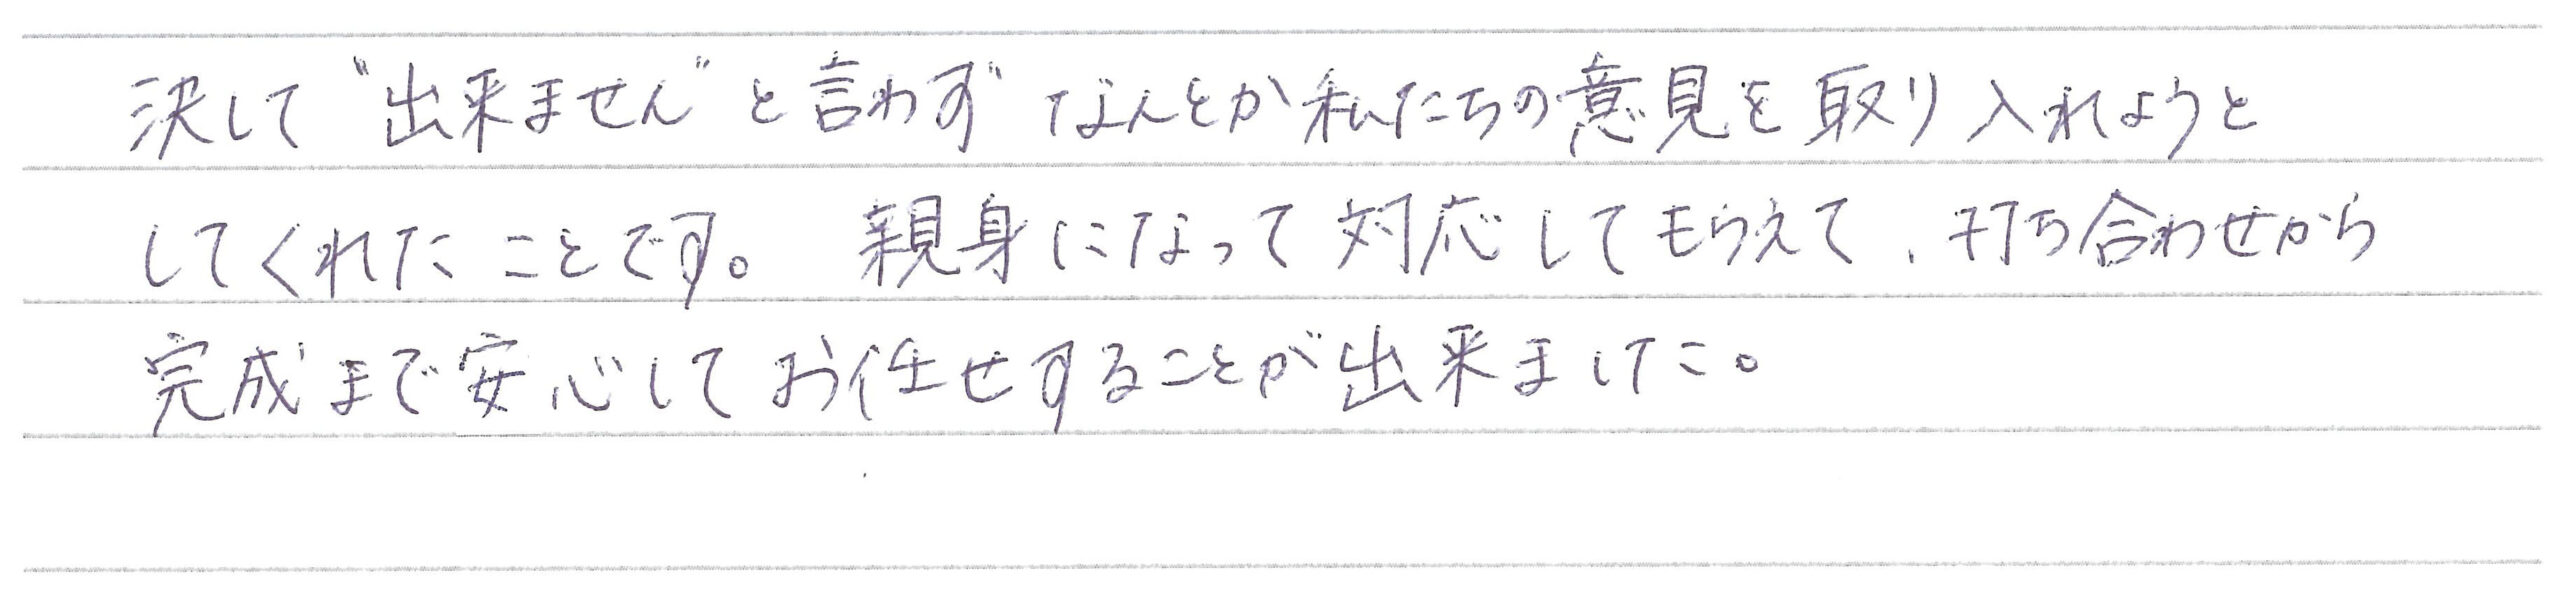 決して"出来ません"と言わず なんとか私たちの意見を取り入れようと
してくれたことです。 親身になって対応してもらえて、打ち合わせから
完成まで安心してお任せすることが出来ました。